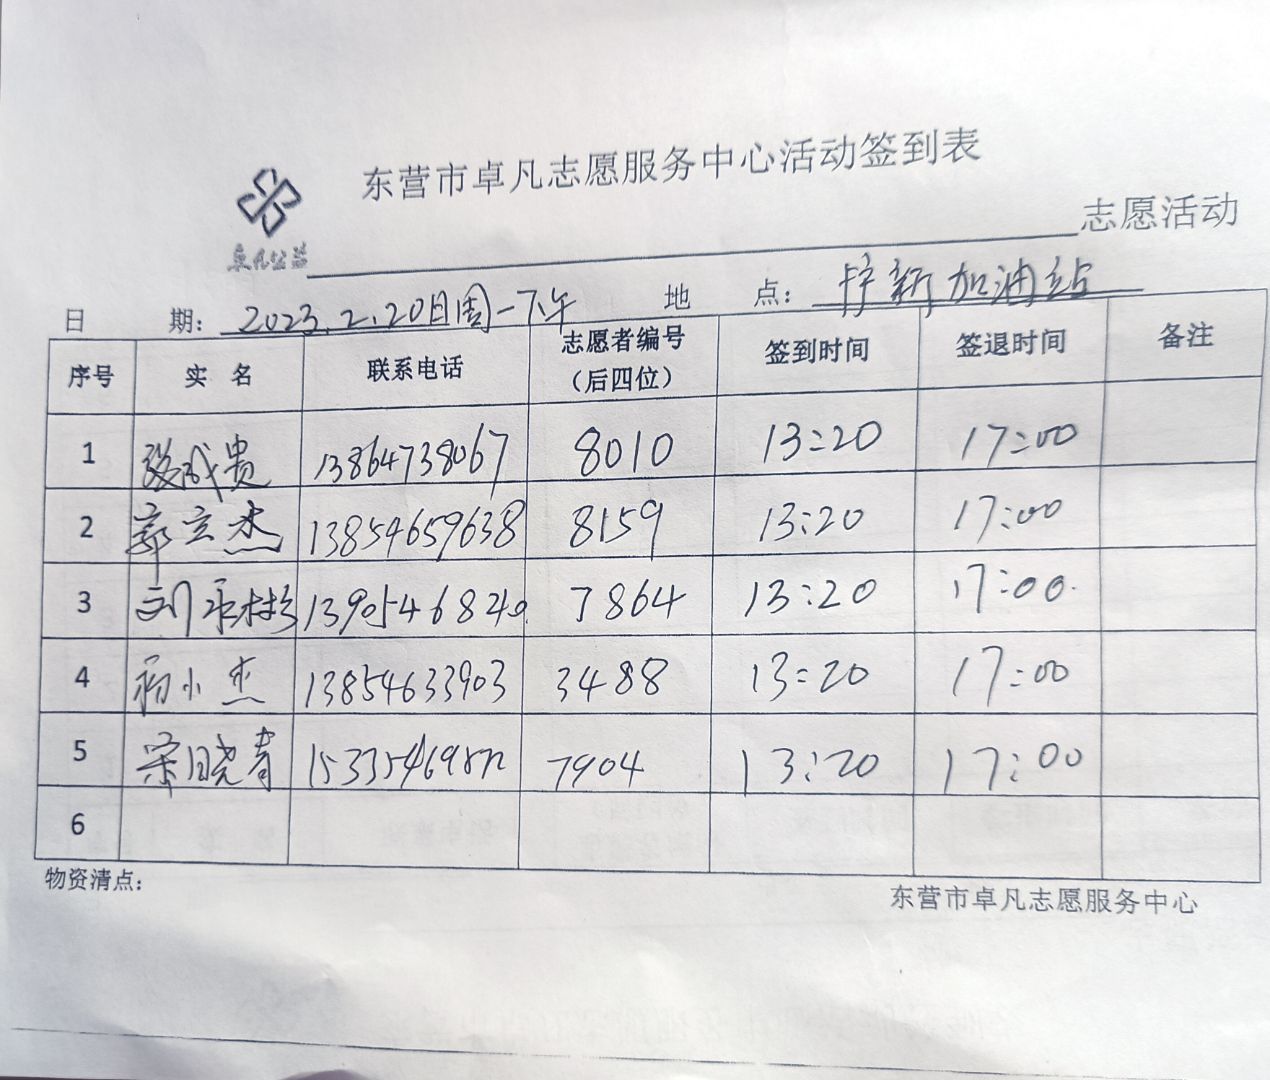 东营市卓凡志愿服务中心活动签到表
卓凡公益 志愿活动
日 期：2023.2.20日周一下午 地 点：新加油站
序号 实 名 联系电话 志愿者编号（后四位） 签到时间 签退时间 备注
1 成贵 13864738067 8010 13:20 17:00
2 郭立杰 13854659638 8159 13:20 17:00
3 刘 1390546820 7864 13:20 17:00
4 小杰 13854633903 3488 13:20 17:00
5 宋晓青 7904 13:20 17:00
6
物资清点：
东营市卓凡志愿服务中心